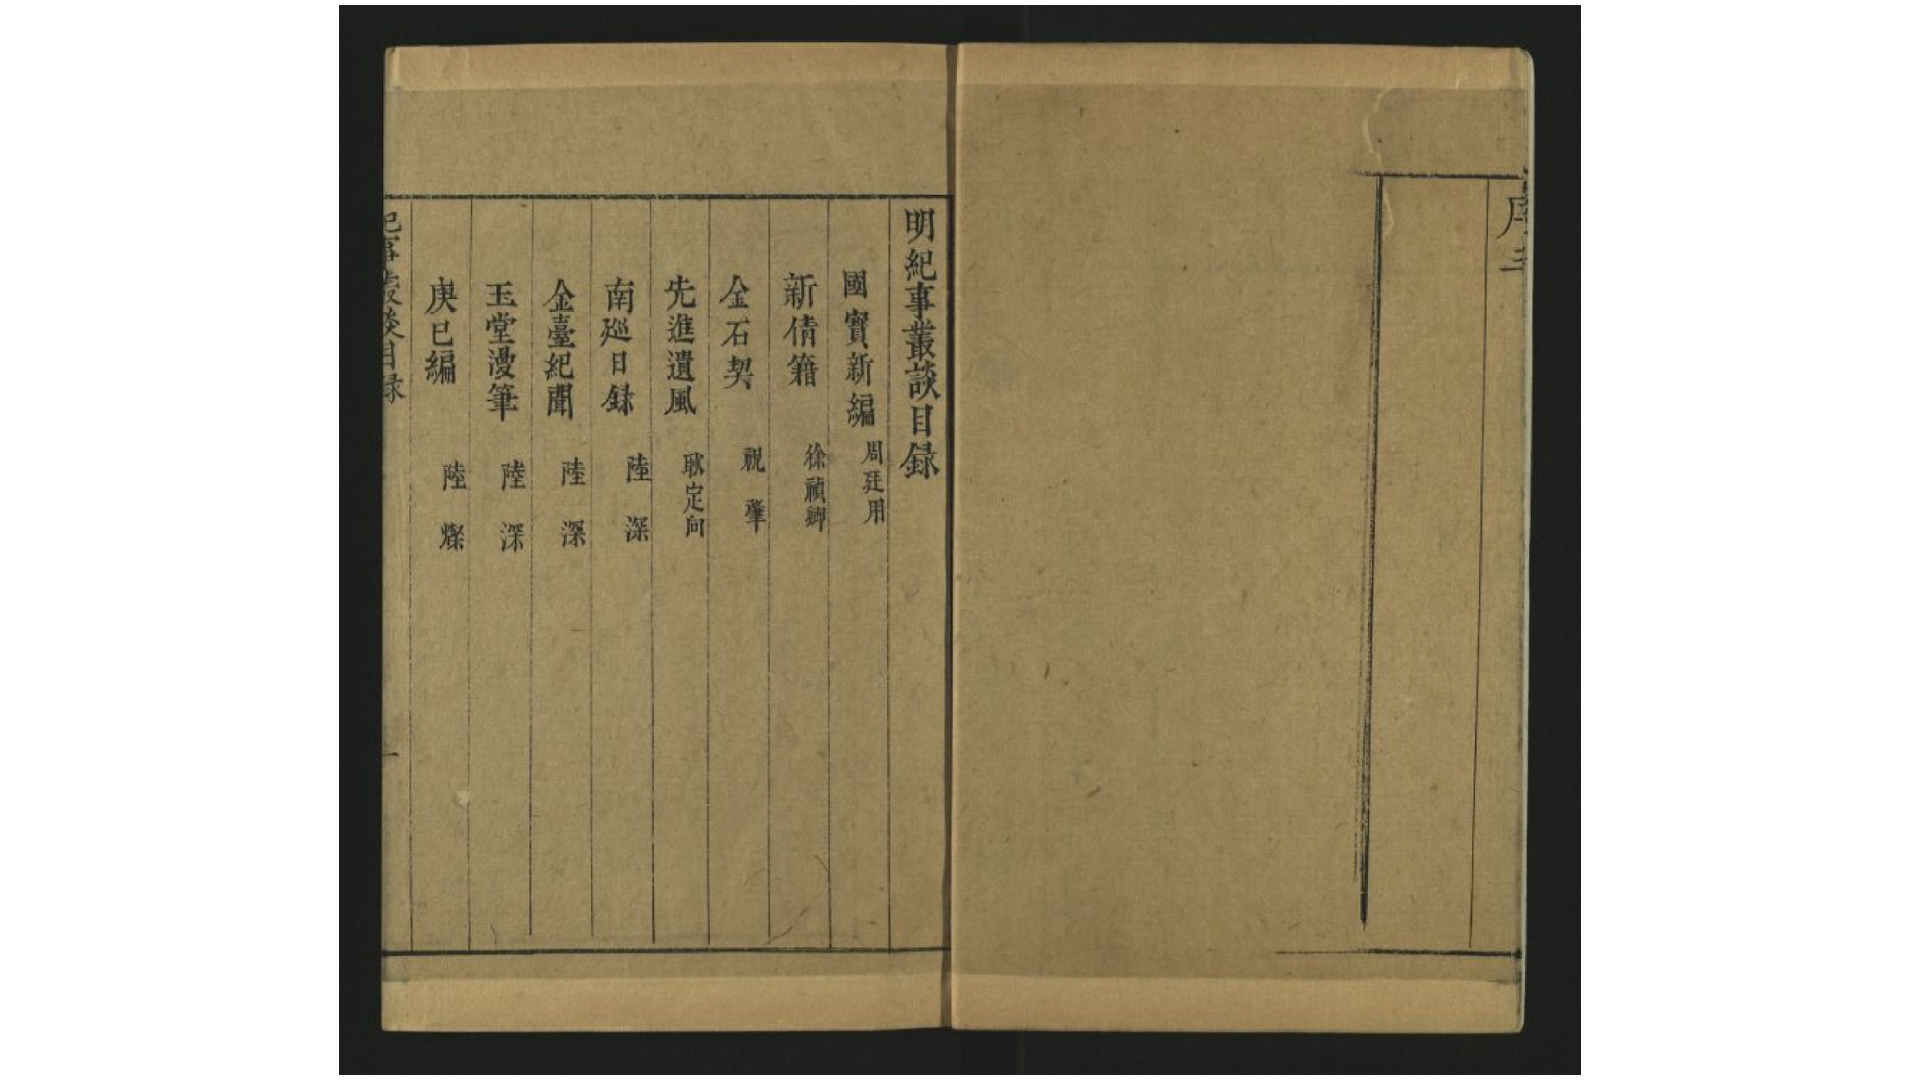 序
明紀事叢談目録
國寳新編 周廷用
新倩籍 徐禎卿
金石契 祝肇
先進遺風 耿定向
南廵日録 陸深
金臺紀聞 陸深
玉堂漫筆 陸深
庚已編 陸燦
紀事叢談目録 一